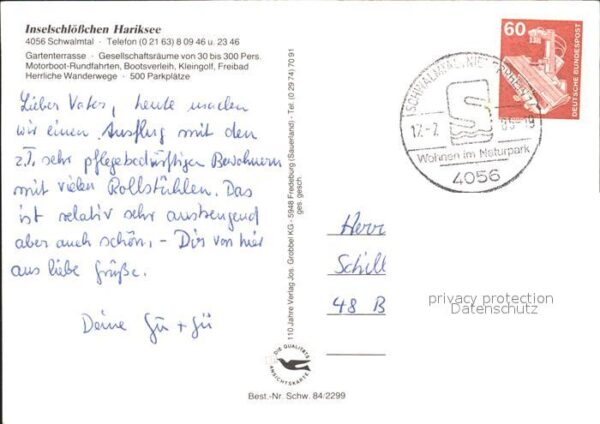 Inselschlößchen Hariksee
4056 Schwalmtal · Telefon (0 21 63) 8 09 46 u. 23 46
Gartenterrasse · Gesellschaftsräume von 30 bis 300 Pers.
Motorboot-Rundfahrten, Bootsverleih, Kleingolf, Freibad
Herrliche Wanderwege · 500 Parkplätze
Lieber Vater, heute machen
wir einen Ausflug mit den
z.T. sehr pflegebedürftigen Bewohnern
mit vielen Rollstühlen. Das
ist relativ sehr anstrengend
aber auch schön. - Dir von hier
aus liebe Grüße.
Deine Gü + Gü
110 Jahre Verlag Jos. Grobbel KG · 5948 Fredeburg (Sauerland) · Tel. (0 29 74) 70 91
ges. gesch.
DIE QUALITÄTS
ANSICHTSKARTE
Best.-Nr. Schw. 84/2299
60
DEUTSCHE BUNDESPOST
SCHWALMTAL
Wohnen im Naturpark
4056
Herr
Schill
48 B
privacy protection
Datenschutz